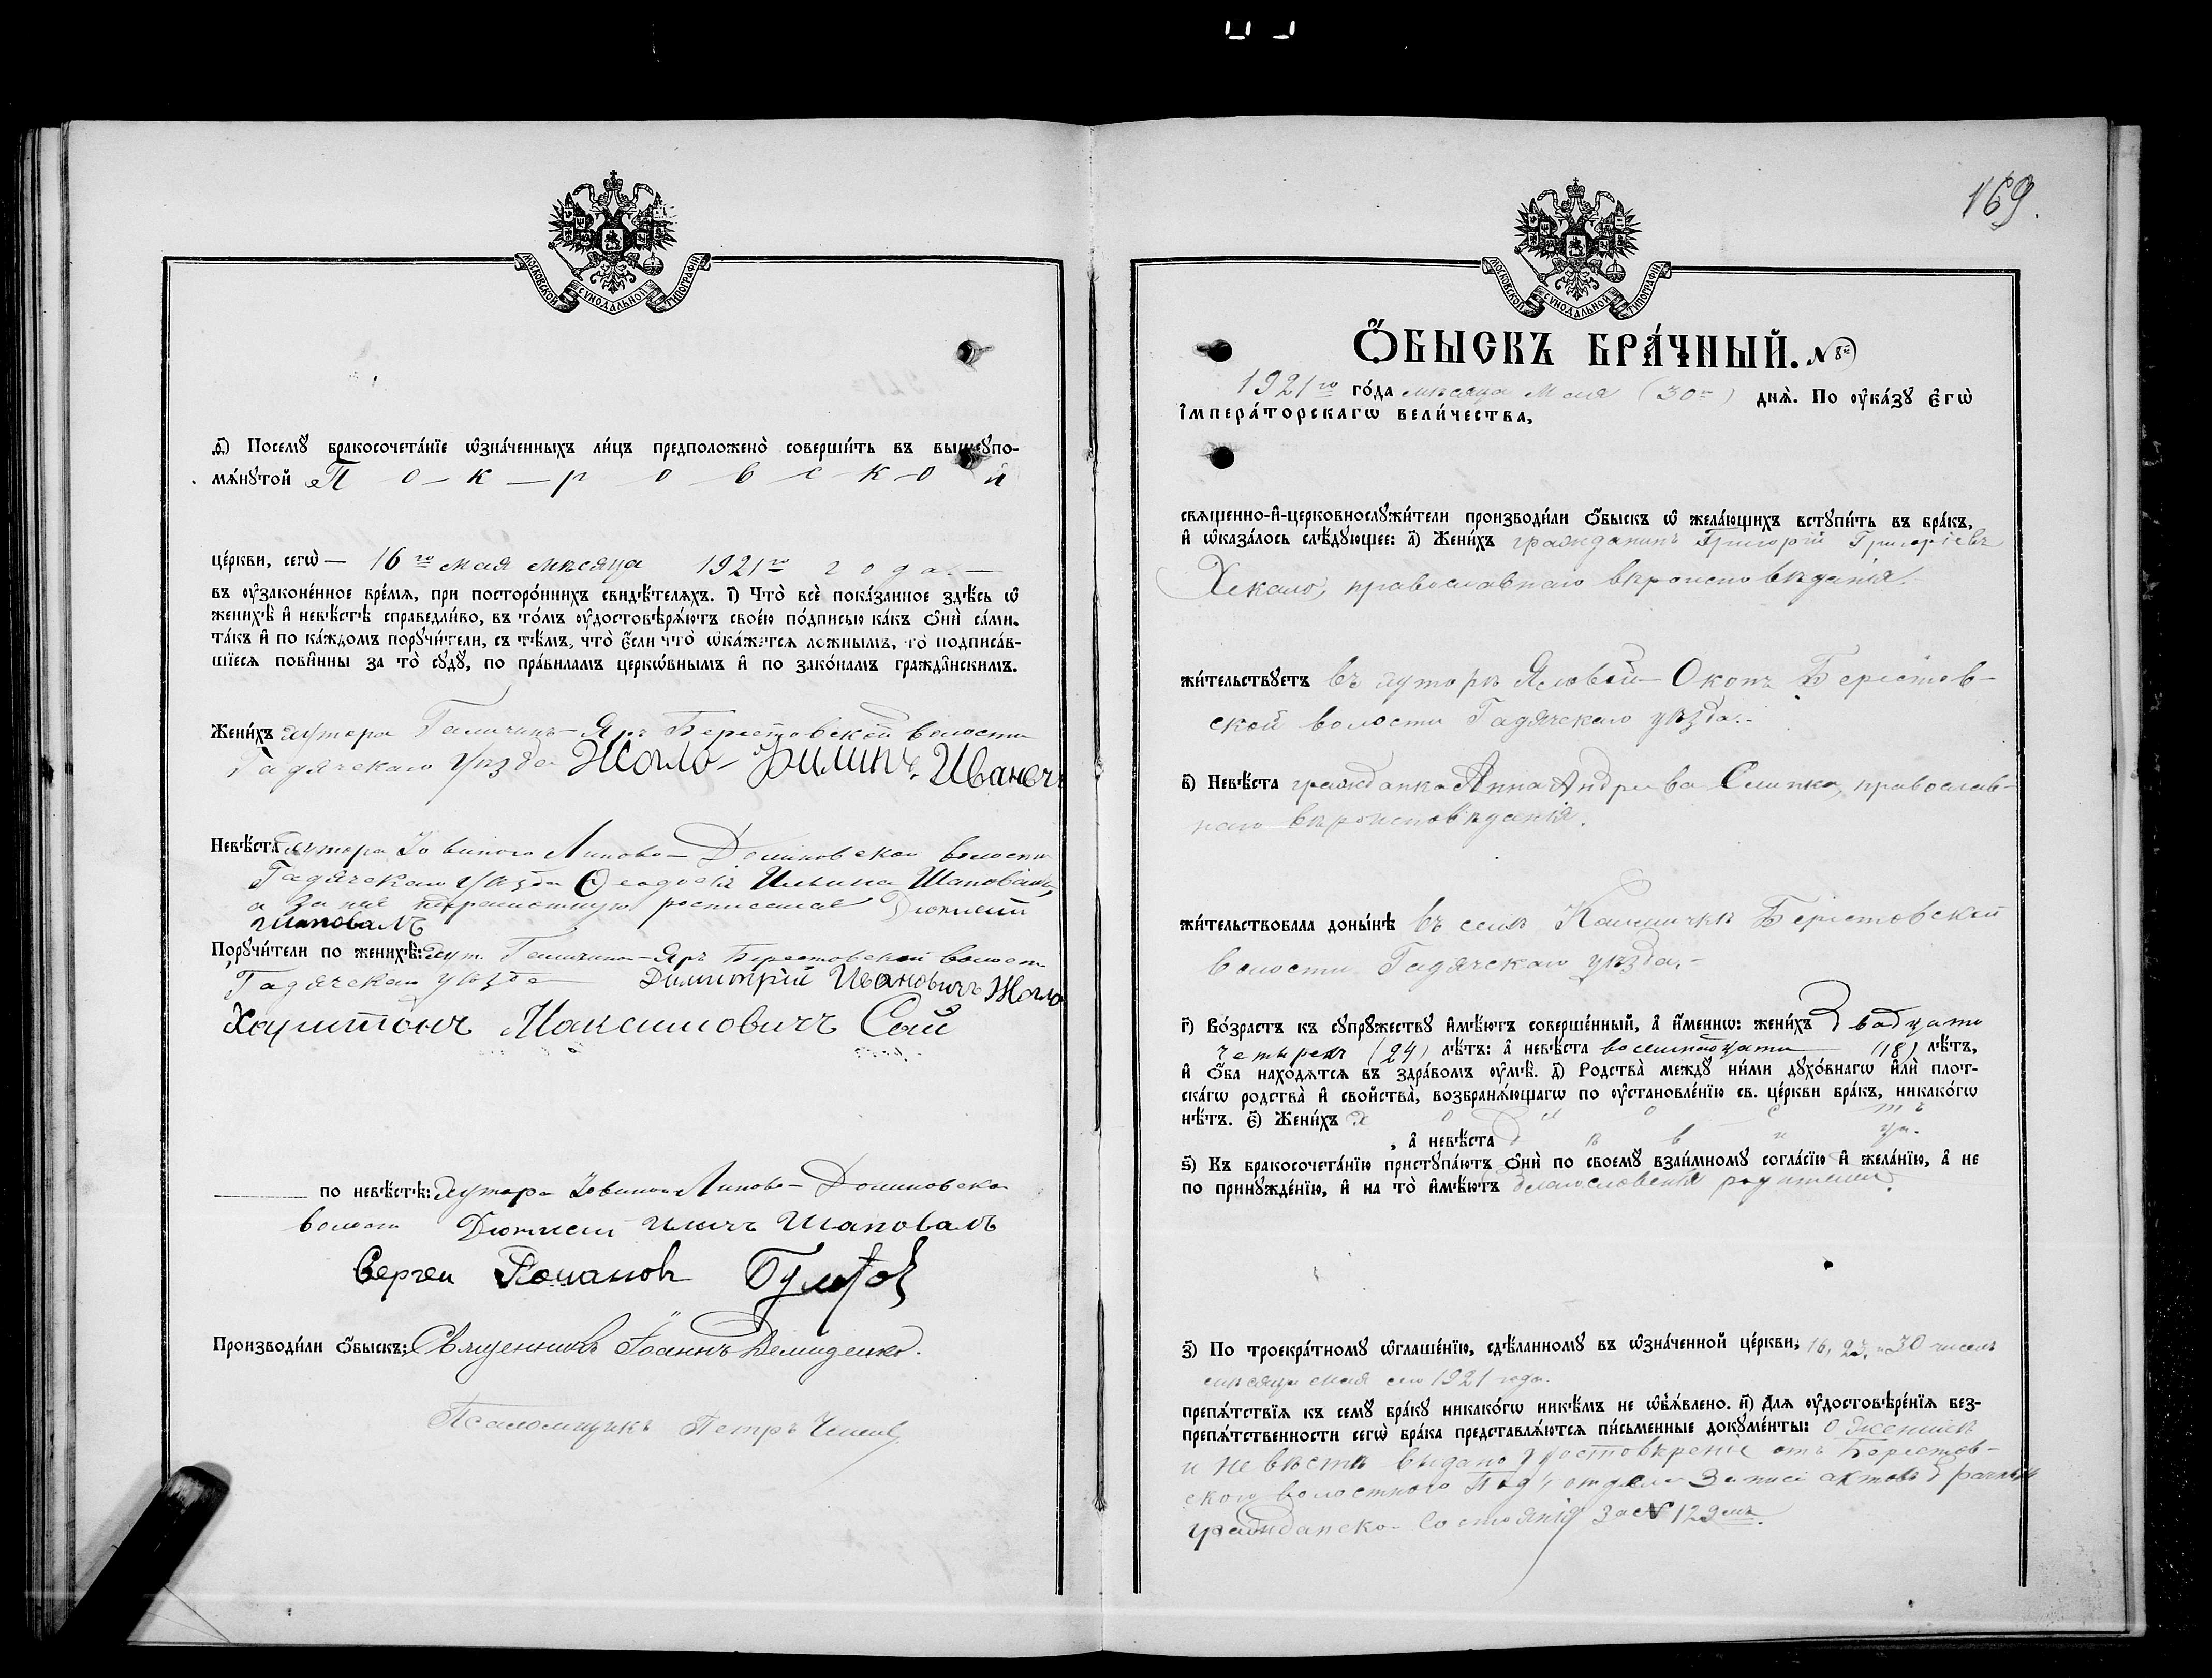 МОСКОВСКОЙ СѴНОДАЛЬНОЙ ТИПОГРАФІИ
ѳ҃) Посемꙋ бракосочета́нїе ѡ҆зна́ченныхъ ли́цъ предположено̀ соверши́ть въ вышеꙋпо-
мѧ́нꙋтой П о к р о в с к о й
це́ркви, сегѡ̀ — 16го мая мѣсяца 1921го года. —
въ ᲂу҆зако́ненное вре́мѧ, при посторо́ннихъ свидѣ́телѧхъ. і҃) Что̀ всѐ пока́занное здѣ́сь ѡ҆
женихѣ̀ и҆ невѣ́стѣ справедли́во, въ то́мъ ᲂу҆достовѣрѧ́ютъ свое́ю по́дписью ка́къ ѻ҆нѝ са́ми.
та́къ и҆ по ка́ждомъ порꙋчи́тели, съ тѣ́мъ, что̀ є҆́сли что̀ ѡ҆ка́жетсѧ ло́жнымъ, то̀ подписа́в-
шїесѧ пови́нны за то̀ сꙋдꙋ̀, по пра́виламъ церко́внымъ и҆ по зако́намъ гражда́нскимъ.
Жени́хъ хутора Галичинъ-Яръ Берестовской волости
Гадячскаго уѣзда Жогло Филипъ Иванов
Невѣ́ста хутора Липово-Долинской волости
Гадячскаго уѣзда Ѳеодосія Ильина Шаповалъ,
а за неё неграмотную росписался
Шаповалъ
Порꙋчи́тели по женихѣ̀: хут. Галичинъ-Яръ Берестовской волости
Гадячскаго уѣзда Димитрій Ивановичъ Жогло
Харитонъ Максимовичъ Сай
по невѣ́стѣ: хутора Липово-Долинской
волости Шаповалъ
Сергеи Романов
Производи́ли ѻ҆́быскъ: Священникъ Іоаннъ Демиденко.
Псаломщикъ Петръ
169.
МОСКОВСКОЙ СѴНОДАЛЬНОЙ ТИПОГРАФІИ
Ѻ҆́БЫСКЪ БРА́ЧНЫЙ. № 8й
1921го го́да мѣсяца Мая (30го) днѧ̀. По ᲂу҆ка́зꙋ є҆гѡ̀
і҆мпера́торскагѡ вели́чества,
свѧщенно-и҆-церковнослꙋжи́тели производи́ли ѻ҆́быскъ ѡ҆ жела́ющихъ встꙋпи́ть въ бра́къ,
и҆ ѡ҆каза́лось слѣ́дꙋющее: а҃) Жени́хъ гражданинъ Григорій Григоріевъ
Хекало, православнаго вѣроисповѣданія
жи́тельствꙋетъ въ хуторѣ Яловый-Окопъ Берестов-
ской волости Гадячскаго уѣзда. -
в҃) Невѣ́ста гражданка Анна Андреева Слипко, православ-
наго вѣроисповѣданія.
жи́тельствовала доны́нѣ въ селѣ Камышкѣ Берестовской
волости Гадячскаго уѣзда. -
г҃) Во́зрастъ къ сꙋпрꙋ́жествꙋ и҆мѣ́ютъ соверше́нный, а҆ и҆́меннѡ: жени́хъ двадцати
четырех (24) лѣ́тъ: а҆ невѣ́ста восемнадцати (18) лѣ́тъ,
и҆ ѻ҆́ба нахо́дѧтсѧ въ здра́вомъ ᲂу҆мѣ̀. д҃) Родства̀ междꙋ̀ ни́ми дꙋхо́внагѡ и҆лѝ пло́т-
скагѡ родства̀ и҆ сво́йства, возбранѧ́ющагѡ по ᲂу҆становле́нїю св. це́ркви бра́къ, никако́гѡ
нѣ́тъ. є҃) Жени́хъ х о л о с т ъ
, а҆ невѣ́ста д ѣ в и ца.
ѕ҃) Къ бракосочета́нїю пристꙋпа́ютъ ѻ҆нѝ по своемꙋ̀ взаи́мномꙋ согла́сїю и҆ жела́нїю, а҆ не
по принꙋжде́нїю, и҆ на то̀ и҆мѣ́ютъ благословеніе родителей.
з҃) По троекра́тномꙋ ѡ҆глаше́нїю, сдѣ́ланномꙋ въ ѡ҆зна́ченной це́ркви, 16, 23, и 30 числъ
мѣсяца мая сего 1921 года.
препѧ́тствїѧ къ семꙋ̀ бра́кꙋ никако́гѡ никѣ́мъ не ѡ҆б̾ѧ́влено. и҃) Длѧ̀ ᲂу҆достовѣре́нїѧ без-
препѧ́тственности сегѡ̀ бра́ка представлѧ́ютсѧ пи́сьменные докꙋме́нты: о женихѣ
и невѣстѣ выдано удостовѣреніе отъ Берестов-
ского волостного Под. отдела Записи актов брачных
гражданско состоянія за № 129мъ.